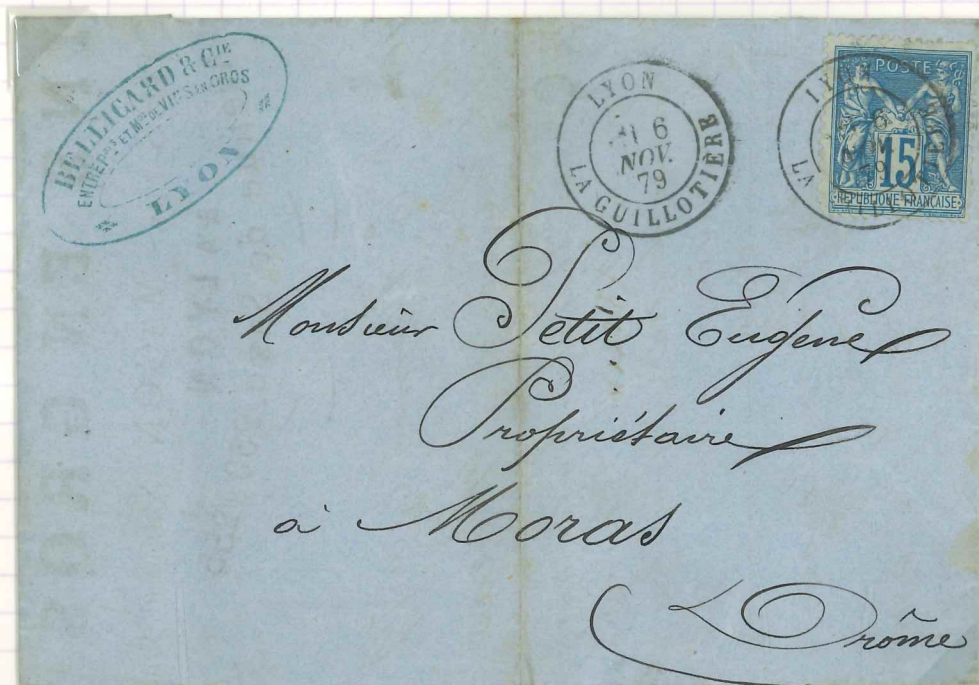 BELLICARD & CIE
ENTREP. ET MDS DE VINS EN GROS
LYON
LYON
6
NOV.
79
LA GUILLOTIÈRE
LYON
LA
POSTE
15
RÉPUBLIQUE FRANÇAISE
Monsieur Petit Eugene
Propriétaire
à Moras
Drôme